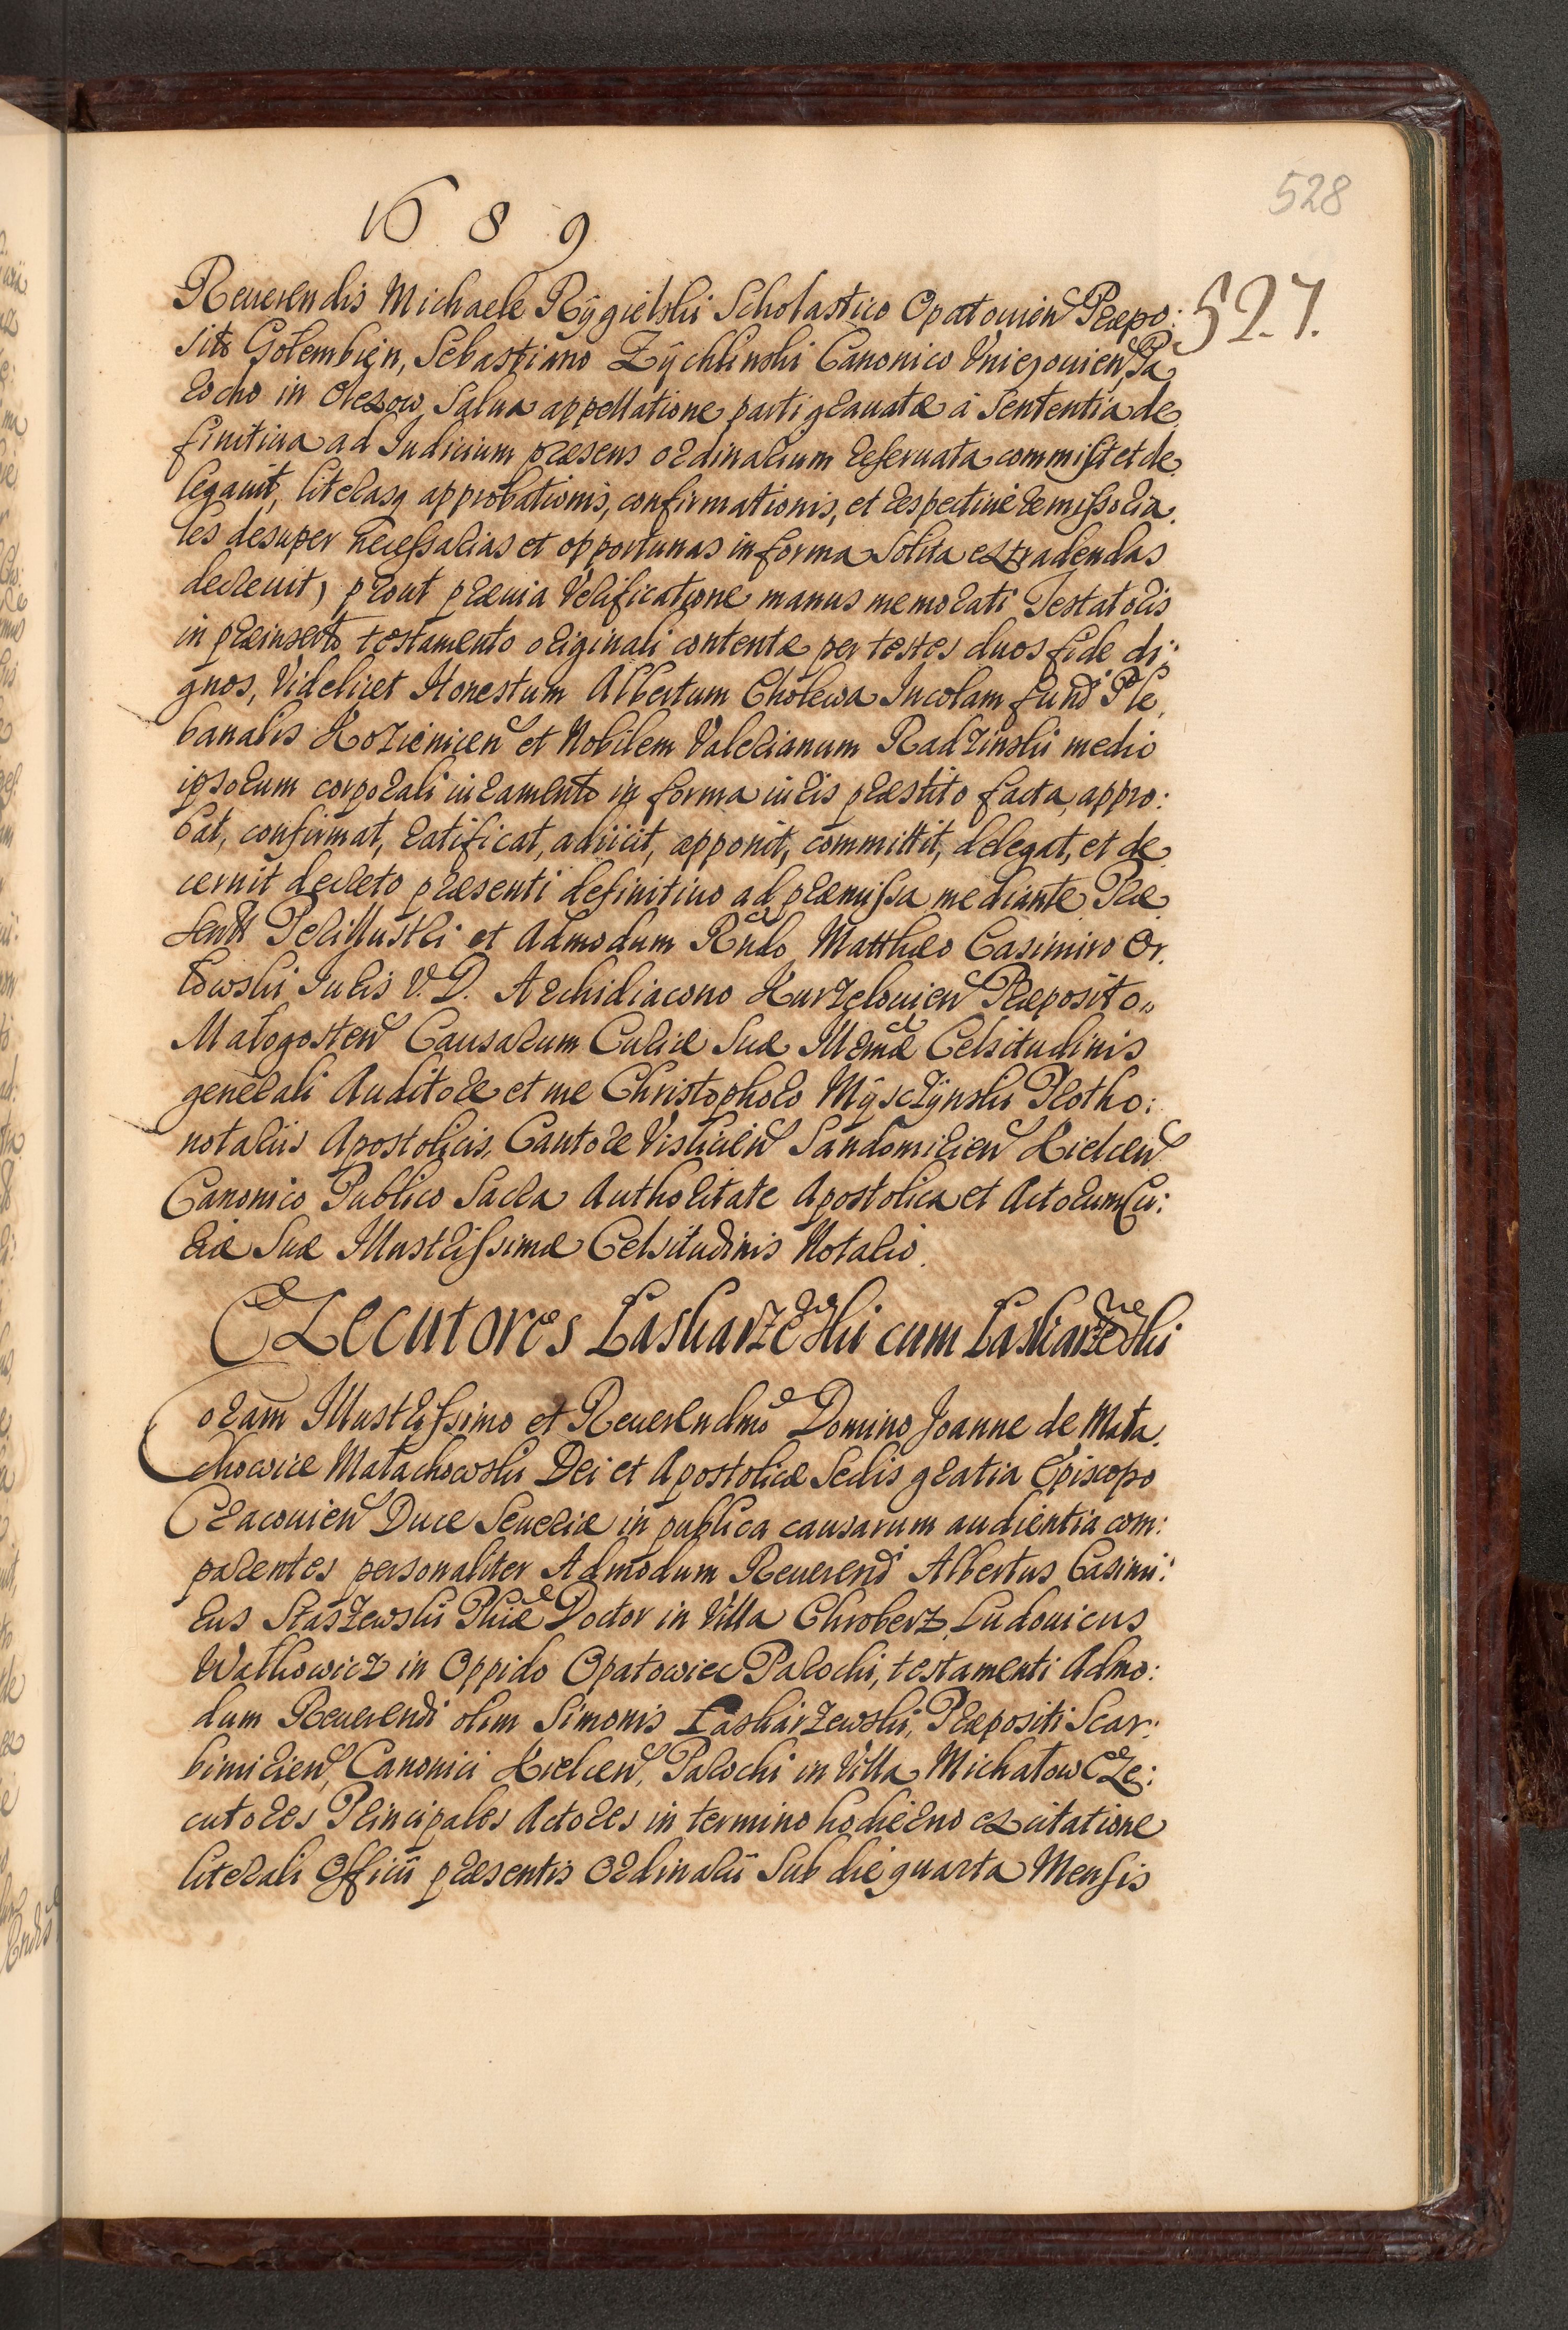 528
1689
527.
Reuerendis Michaele Rÿgielski Scholastico Opatouien Præpo:
sito Gołembien, Sebastiano Zÿchlinski Canonico Vniejouien, Pa
rocho in Olexow, Salua appellatione parti grauatæ à Sententia de
finitiua ad Iudicium præsens ordinarium reseruata commisit et de
legauit, literasq approbationis, confirmationis, et respectiuè remissoria
les desuper necessarias et opportunas in forma Solita extradendas
decreuit, prout præuia Verificatione manus memorati Testatoris
in præinserto testamento originali contentæ per testes duos fide di:
gnos, Videlicet Honestum Albertum Cholewa Incolam fundi Ple
banalis Kozienicen et Nobilem Valerianum Radzinski medio
ipsorum corporali iuramento in forma iuris præstito facta, appro:
bat, confirmat, ratificat, adiicit, apponit, committit, delegat, et de
cernit decreto præsenti definitiuo ad præmissa mediante Præ
sentt Perillustri et Admodum Rndo Matthæo Casimiro Or
łowski Iuris V. D. Archidiacono Kurzelouien Præposito
Małogosten Causarum Curiæ Suæ Illrmæ Celsitudinis
generali Auditore et me Christophoro Mÿsczÿnski Protho:
notariis Apostolicis, Cantore Vislicien Sandomirien Kielcen
Canonico Publico Sacra Authoritate Apostolica et Actorum Cu:
riæ Suæ Illustrissimæ Celsitudinis Notario.
Executores Łaskarzewski cum Łaskarzewski
Coram Illustrissimo et Reuerendmo Domino Joanne de Mała
chowice Małachowski Dei et Apostolicæ Sedis gratia Episcopo
Cracouien Duce Seueriæ in publica causarum audientia com:
parentes personaliter Admodum Reuerendi Albertus Casimi:
rus Staszewski Phiæ Doctor in Villa Chroberz, Ludouicus
Walkowicz in Oppido Opatowiec Parochi, testamenti Admo:
dum Reuerendi olim Simonis Łaskarzewski, Præpositi Scar:
bimirien, Canonici Kielcen, Parochi in Villa Michałow Exe:
cutores Principales Actores in termino hodierno ex citatione
literali Officii præsentis Ordinarii Sub die quarta Mensis